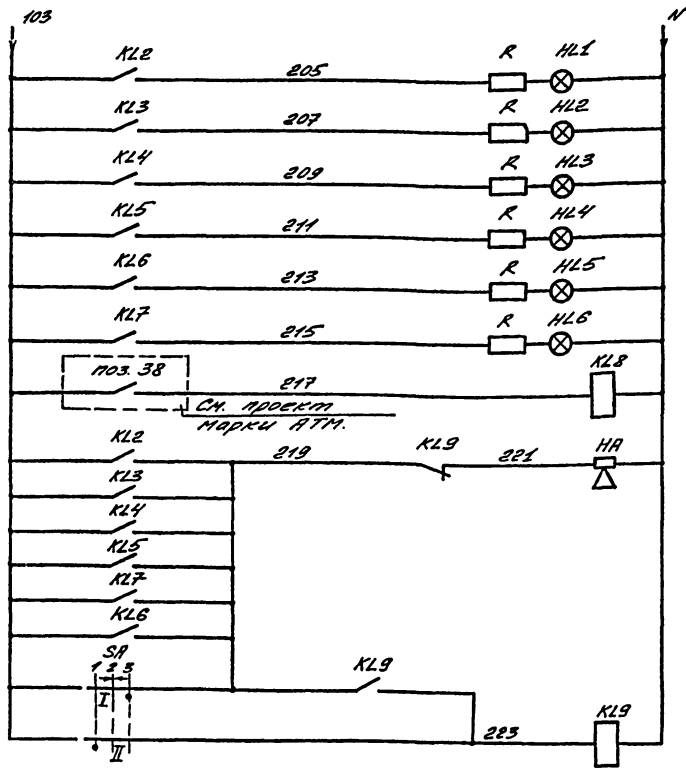 103 N
KL2 205 R HL1
KL3 207 R HL2
KL4 209 R HL3
KL5 211 R HL4
KL6 213 R HL5
KL7 215 R HL6
поз. 38 217 KL8
См. проект
марки АТМ.
KL2 219 KL9 221 HA
KL3
KL4
KL5
KL7
KL6
SA
1 2 3 KL9
I
223 KL9
II